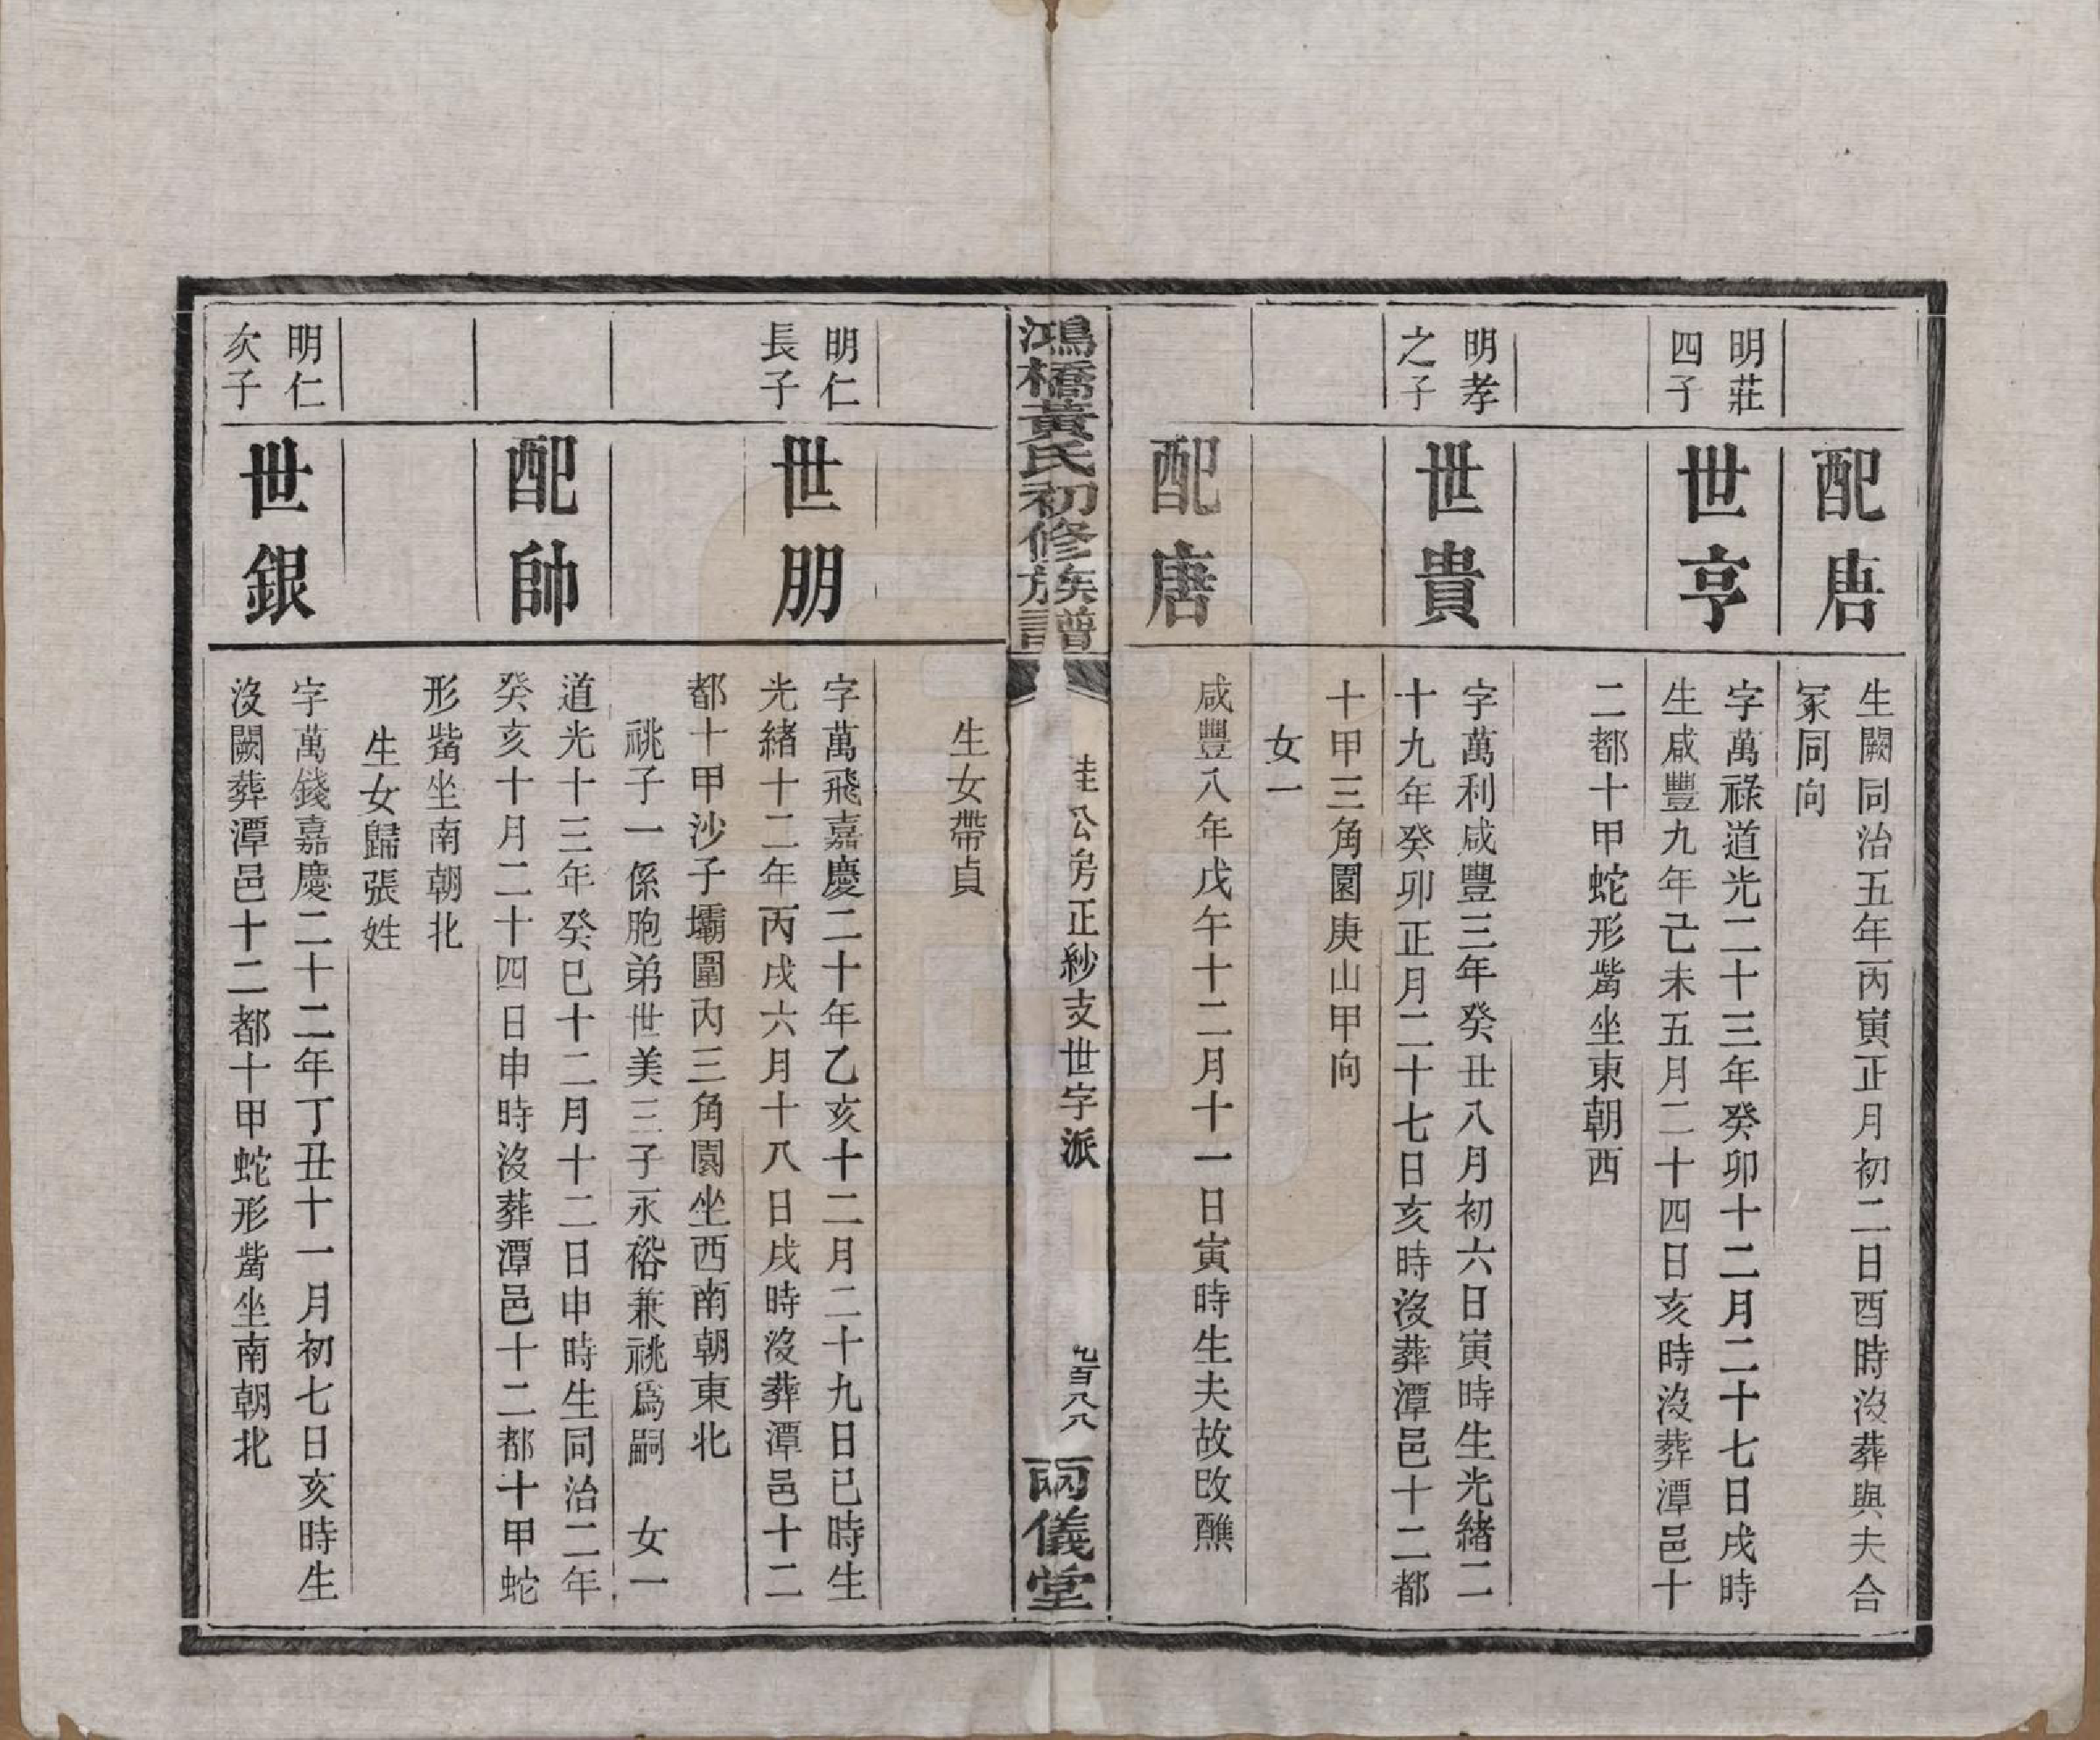 配唐
生闕同治五年丙寅正月初二日酉時沒葬與夫合
冢同向
明莊
四子
世亨
字萬祿道光二十三年癸卯十二月二十七日戌時
生咸豐九年己未五月二十四日亥時沒葬潭邑十
二都十甲蛇形觜坐東朝西
明孝
之子
世貴
字萬利咸豐三年癸丑八月初六日寅時生光緒二
十九年癸卯正月二十七日亥時沒葬潭邑十二都
十甲三角園庚山甲向
女一
配唐
咸豐八年戊午十二月十一日寅時生夫故改醮
生女帶貞
鴻橋黃氏初修族譜
公房正紗支世字派
九百八八
兩儀堂
明仁
長子
世朋
字萬飛嘉慶二十年乙亥十二月二十九日巳時生
光緒十二年丙戌六月十八日戌時沒葬潭邑十二
都十甲沙子壩圍內三角園坐西南朝東北
祧子一係胞弟世美三子永裕兼祧爲嗣 女一
配帥
道光十三年癸巳十二月十二日申時生同治二年
癸亥十月二十四日申時沒葬潭邑十二都十甲蛇
形觜坐南朝北
生女歸張姓
明仁
次子
世銀
字萬錢嘉慶二十二年丁丑十一月初七日亥時生
沒闕葬潭邑十二都十甲蛇形觜坐南朝北